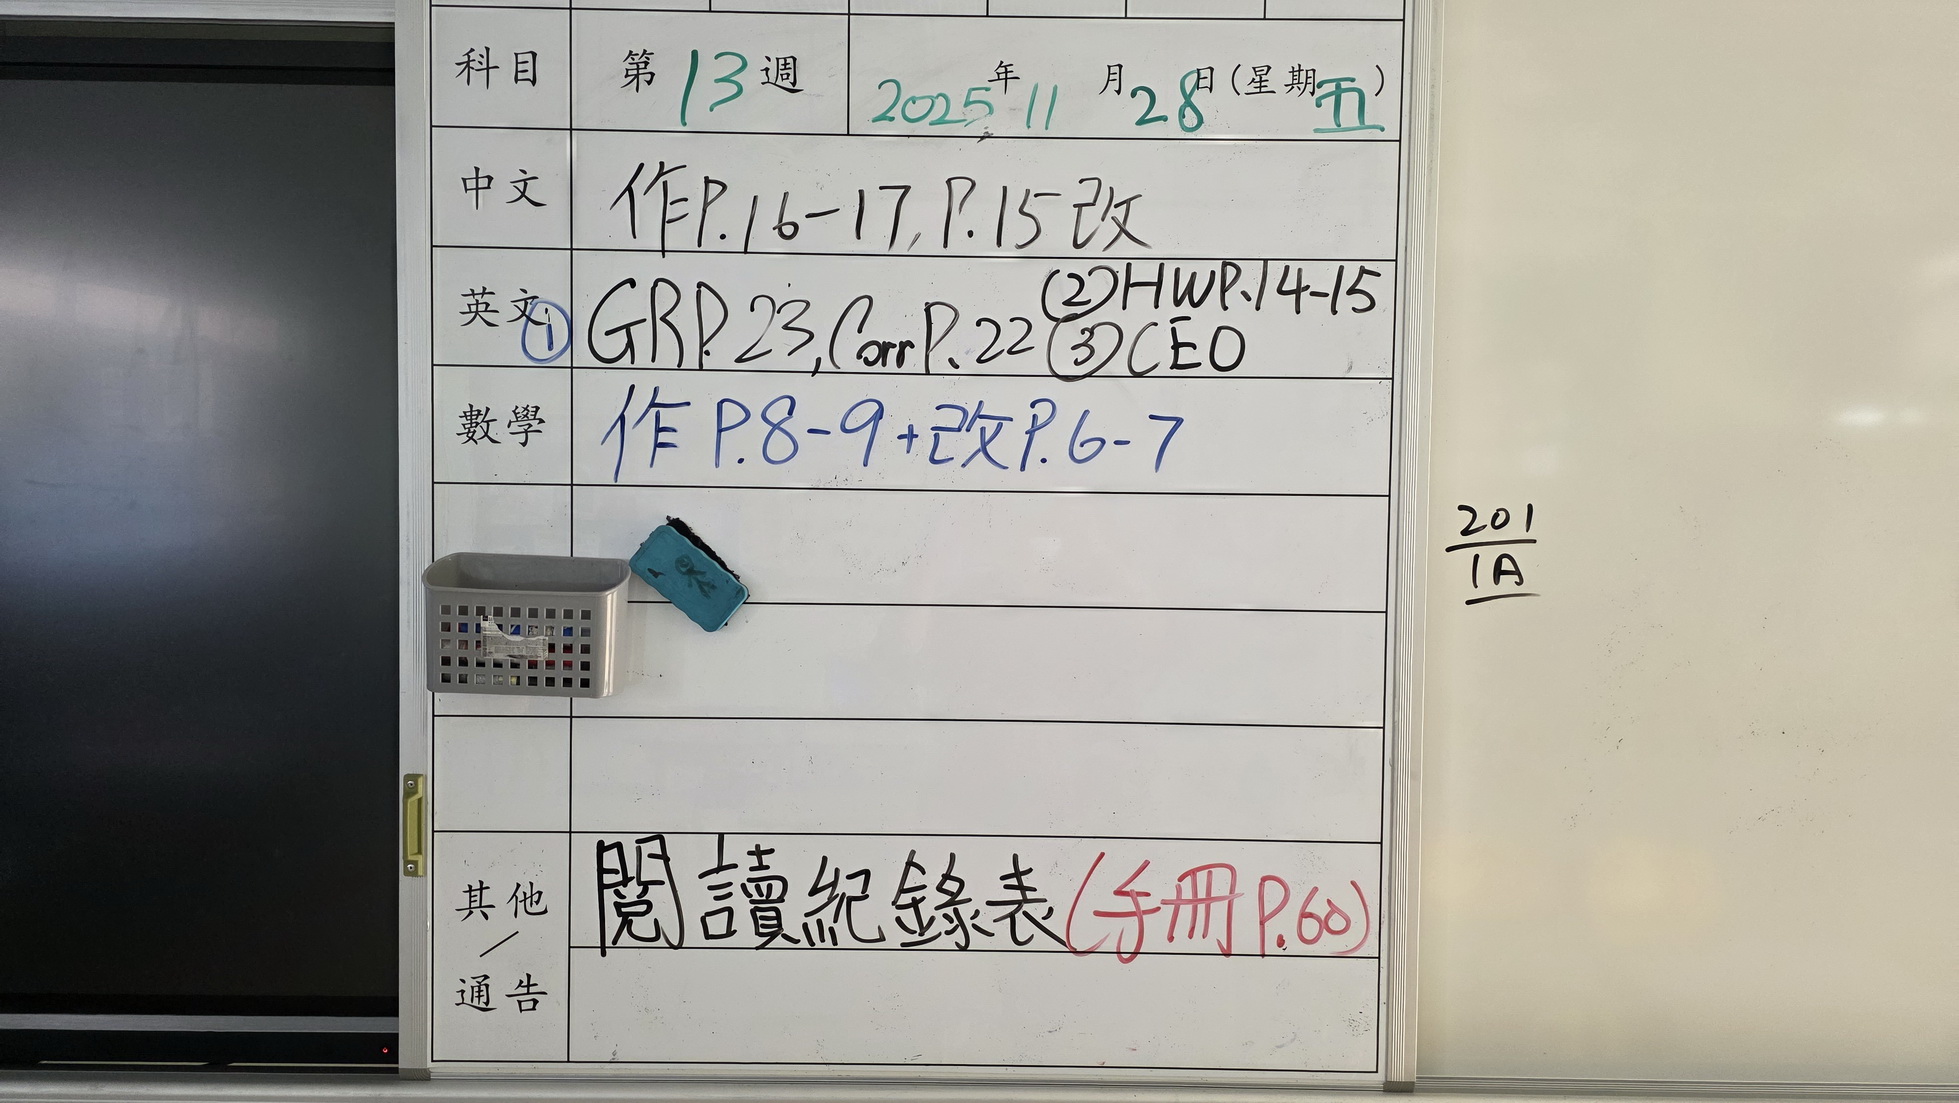 科目 第13週 2025年11月28日(星期五)
中文 作P.16-17, P.15改
英文 ① GRP.23, Corr P.22 (2)HWP.14-15
(3)CEO
數學 作P.8-9+改P.6-7
201
1A
其他/通告 閱讀紀錄表(手冊P.60)